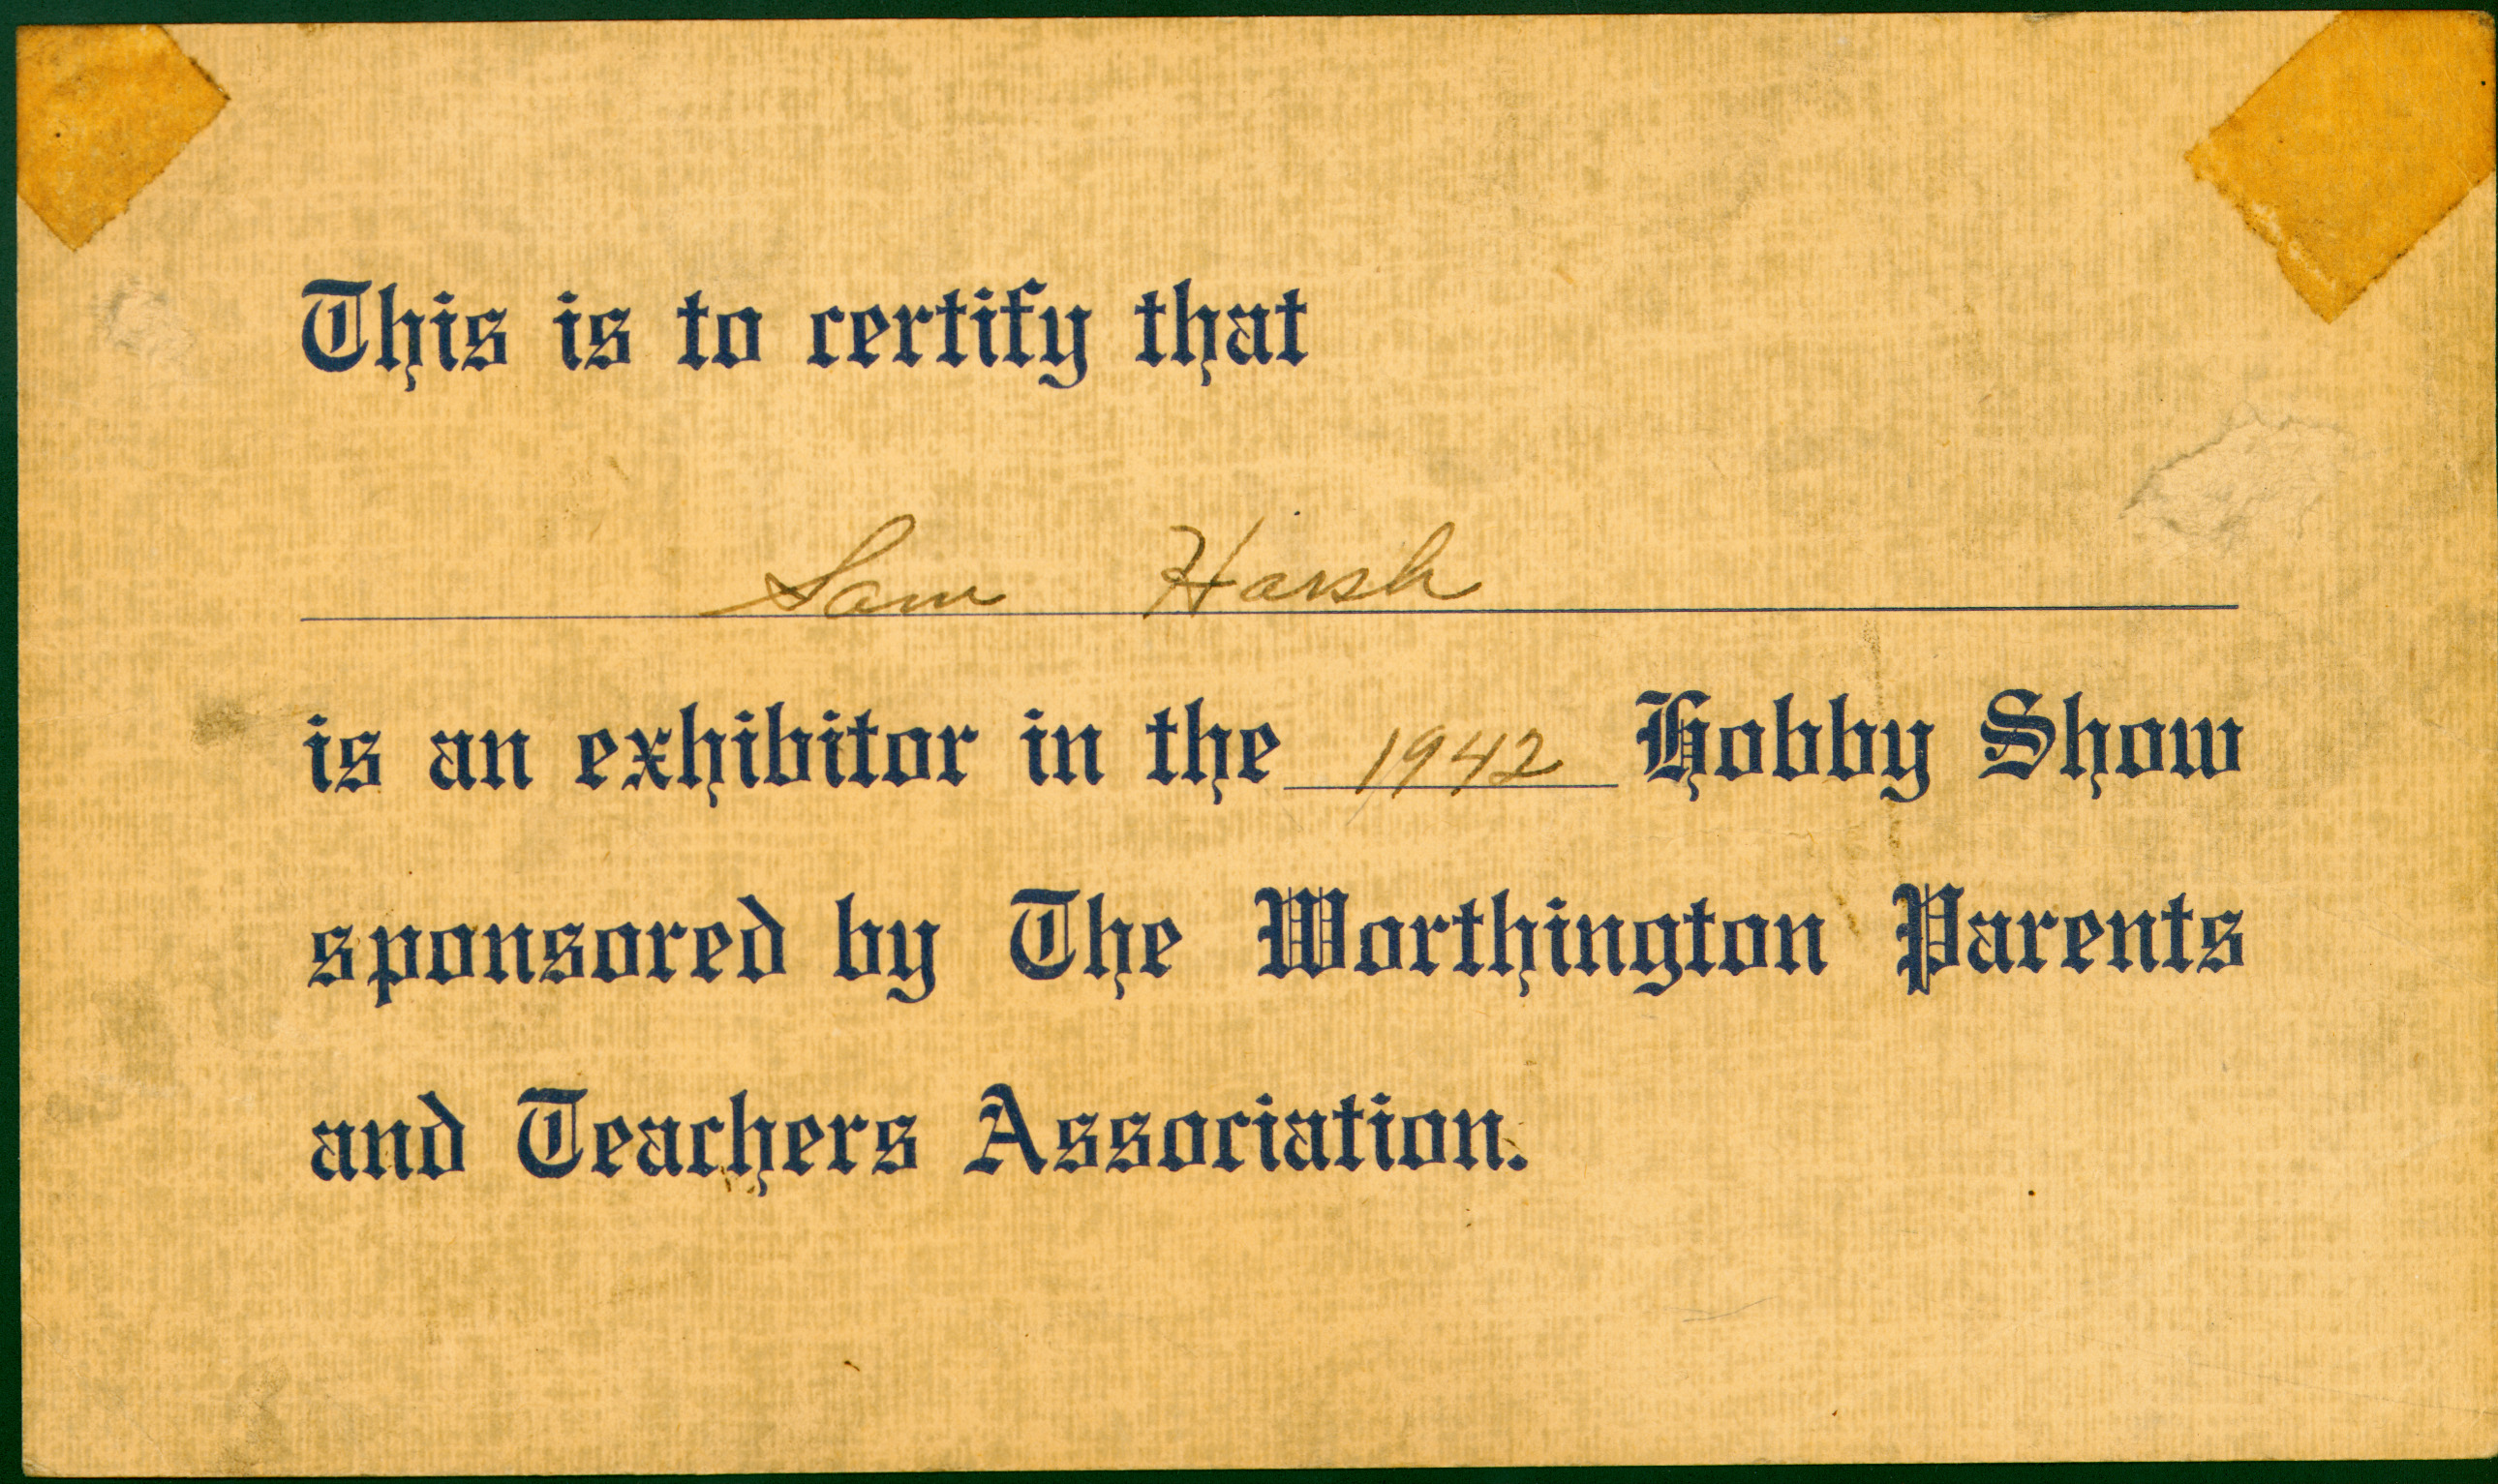 This is to certify that
Sam Harsh
is an exhibitor in the 1942 Hobby Show
sponsored by The Worthington Parents
and Teachers Association.